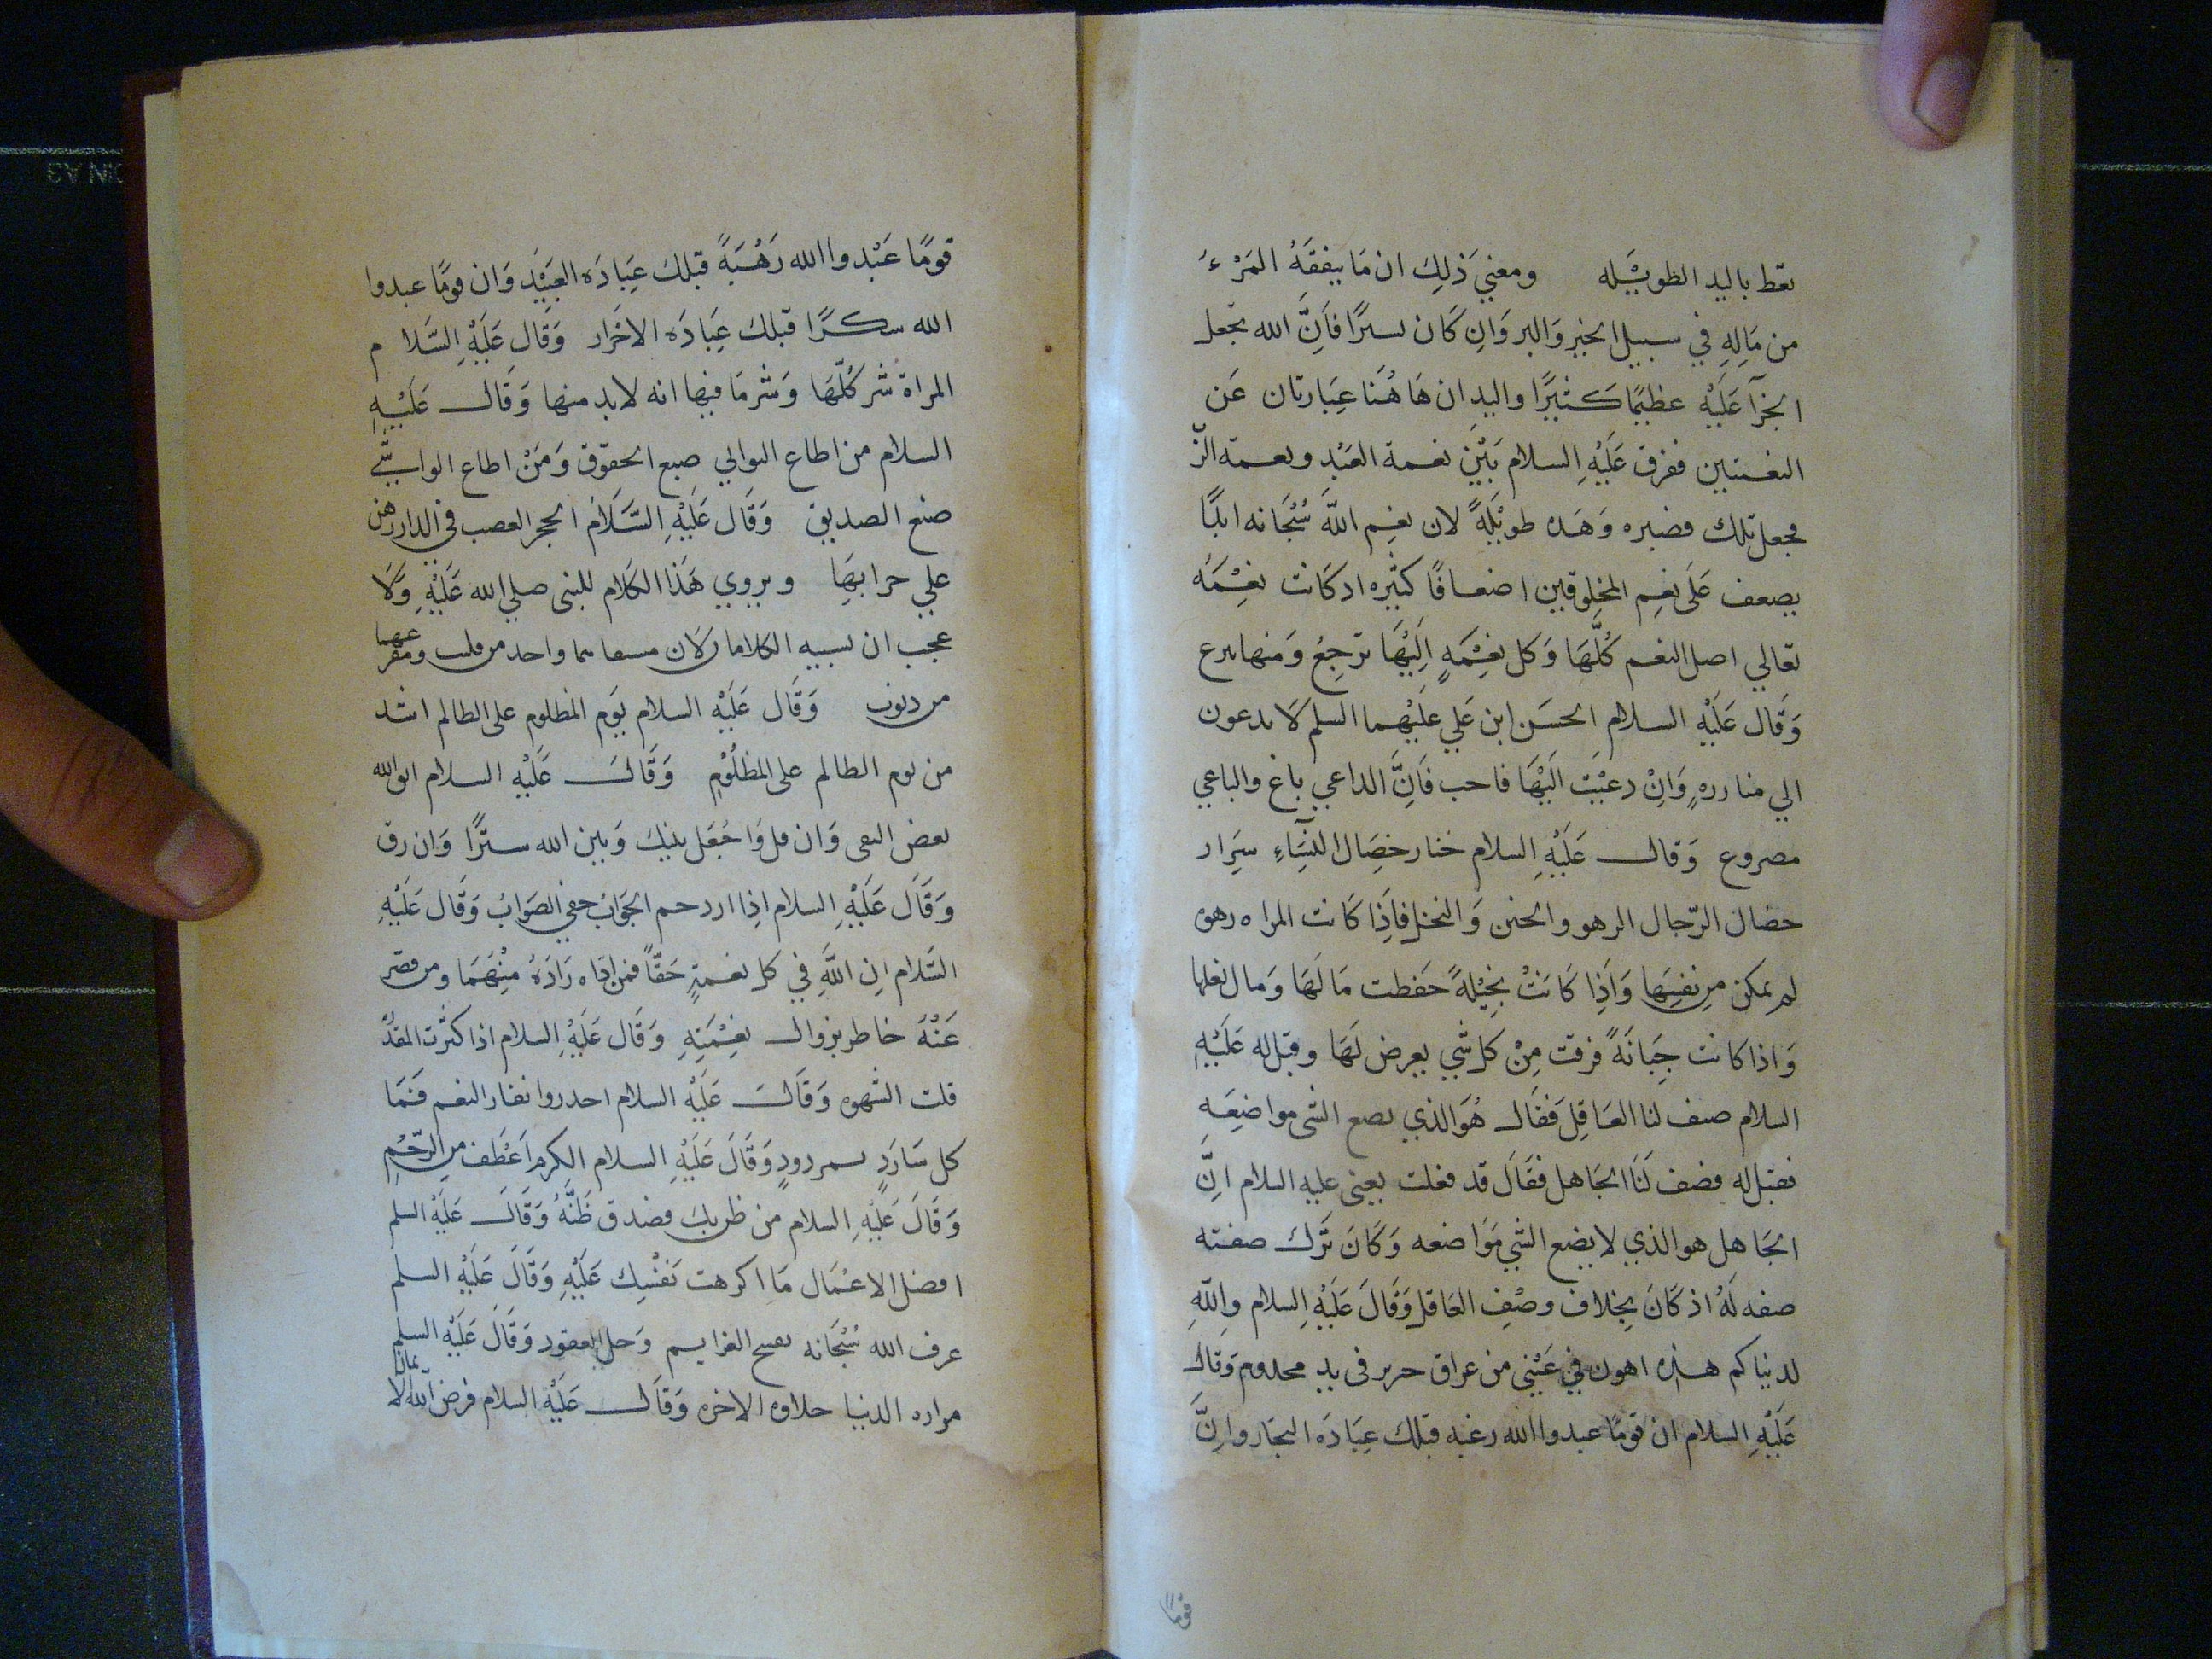 تعط باليد الطويله ومعني ذلك ان ما ينفقه المرء
من ماله في سبيل الخير والبر وان كان يسرًا فان الله يجعل
الجزآ عليه عظيمًا كثيرًا واليدان هاهنا عبارتان عن
النعمتين ففرق عليه السلام بين نعمة العبد ونعمة الرّ
فجعل تلك قصيره وهذه طويلةً لان نعم الله سبحانه ابدًا
يضعف على نعم المخلوقين اضعافًا كثيره اذ كانت نعمه
تعالي اصل النعم كلها وكل نعمهٍ اليها ترجع ومنها تنزع
وقال عليه السلام الحسن ابن علي عليهما السلم لا تدعون
الي مبارزهٍ وان دعيت اليها فاجب فان الداعي باغ والباغي
مصروع وقال عليه السلام خيار خصال النساء شرار
خصال الرجال الزهو والجبن والبخل فاذا كانت المراه زهوه
لم تمكن من نفسها واذا كانت بخيلةً حفظت مالها ومال بعلها
واذا كانت جبانةً فرقت من كل شي يعرض لها وقيل له عليه
السلام صف لنا العاقل فقال هو الذي يضع الشى مواضعه
فقيل له فصف لنا الجاهل فقال قد فعلت يعنى عليه السلام ان
الجاهل هو الذي لا يضع الشي مواضعه وكان ترك صفته
صفه له اذ كان بخلاف وصف العاقل وقال عليه السلام والله
لدنياكم هذه اهون في عيني من عراق خنزير فى يد مجذوم وقال
عليه السلام ان قومًا عبدوا الله رغبه فتلك عبادة التجار وان
قومًا
قومًا عبدوا الله رهبةً فتلك عبادة العبيد وان قومًا عبدوا
الله شكرًا فتلك عبادة الاحرار وقال عليه السلام
المراة شر كلها وشر ما فيها انه لا بد منها وقال عليه
السلام من اطاع التواني ضيع الحقوق ومن اطاع الواشي
ضيع الصديق وقال عليه السلام الحجر الغصب في الدار رهن
علي خرابها ويروي هذا الكلام للنبى صلي الله عليه ولا
عجب ان يشبه الكلامان لان مستقاهما واحد من قليب ومفرغهما
من ذنوب وقال عليه السلام يوم المظلوم على الظالم اشد
من يوم الظالم على المظلوم وقال عليه السلام اتق الله
بعض التقى وان قل واجعل بينك وبين الله سترًا وان رق
وقال عليه السلام اذا ازدحم الجواب خفي الصواب وقال عليه
السلام ان لله في كل نعمةٍ حقًا فمن اداه زاده منهما ومن قصر
عنه خاطر بزوال نعمته وقال عليه السلام اذا كثرت المقد
قلت الشهوه وقال عليه السلام احذروا نفار النعم فما
كل شاردٍ بمردودٍ وقال عليه السلام الكرم اعطف من الرحم
وقال عليه السلام من ظن بك فصدق ظنه وقال عليه السلم
افضل الاعمال ما اكرهت نفسك عليه وقال عليه السلم
عرف الله سبحانه بفسخ العزايم وحل العقود وقال عليه السلم
مراره الدنيا حلاوه الاخره وقال عليه السلام فرض الله الايمان